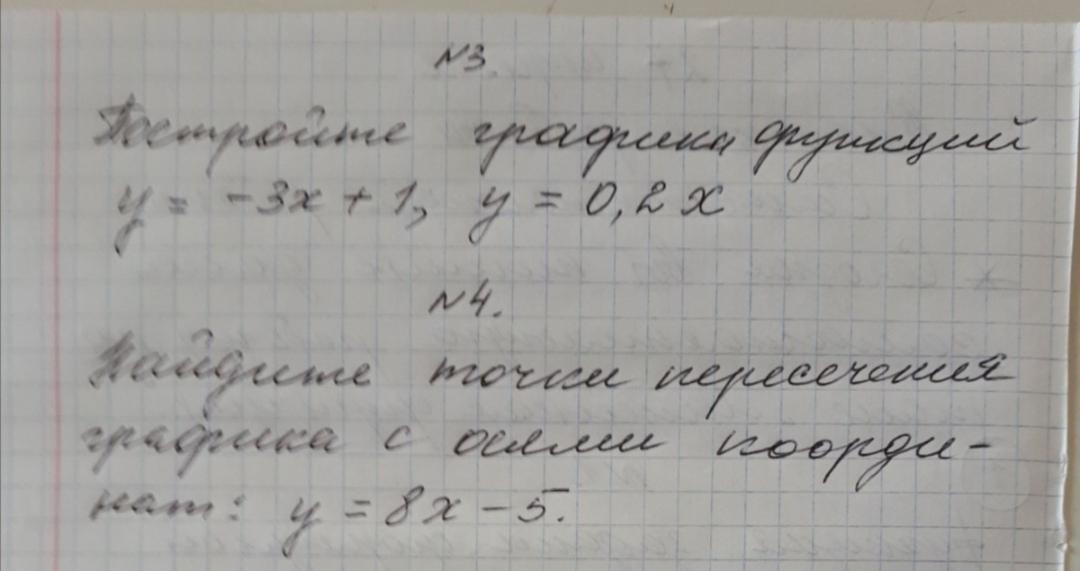 N3.
Постройте графики функций
y = -3x + 1, y = 0,2x
N4.
Найдите точки пересечения
графика с осями коорди-
нат: y = 8x - 5.